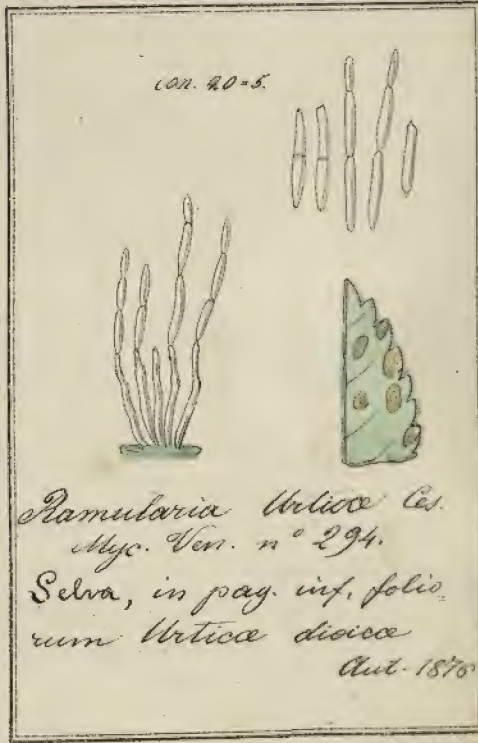 con. 20=5.
Ramularia Urticæ Ces.
Myc. Ven. n° 294.
Selva, in pag. inf. folio
rum Urticæ dioicæ
Aut. 1876